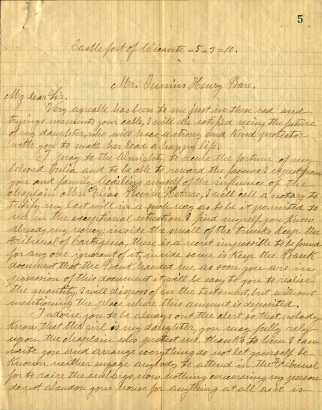 5
Castle fort of Alicante - 5 - 3 = 10.
Mr. Henry Bare.
My dear Sir.
Very agreable has been to me just in these sad and
trying moments your calle, I will die satisfied seeing the future
of my daughter, who will have a strong and kind protector
with you to make her lead a happy life.
I pray to the Almighty to secure the fortune of my
beloved and to be able to reward the favours I expect from
you and family. Availing myself of the influence of the
chaplain Mr. I will call a notary to
testify my last will in a such way as to be it permitted to
me in the exceptional situation I find myself, you know
already, my money, inside the small of the trunks keep the
tribunal of Cartagena, there is a secret impossible to be found
for any one ignorant of it, inside same is keep the Bank
document that the Bank handed me as soon you are in
possession of this document it will be easy to you to raise
the quantity, I will dispose of same the intended but without
mentioning the place where this amount is deposited.
I advise you to be always on the alert so that nobody
know that the girl is my daughter, you may fully rely
upon the chaplain who protect me, thanks to him I can
write you and arrange everything, do not let yourself be
known neither engage anybody to attend in the tribunal
for to raise the embargo, now nothing concerning my person
do not abandon your house for anything at all as it is